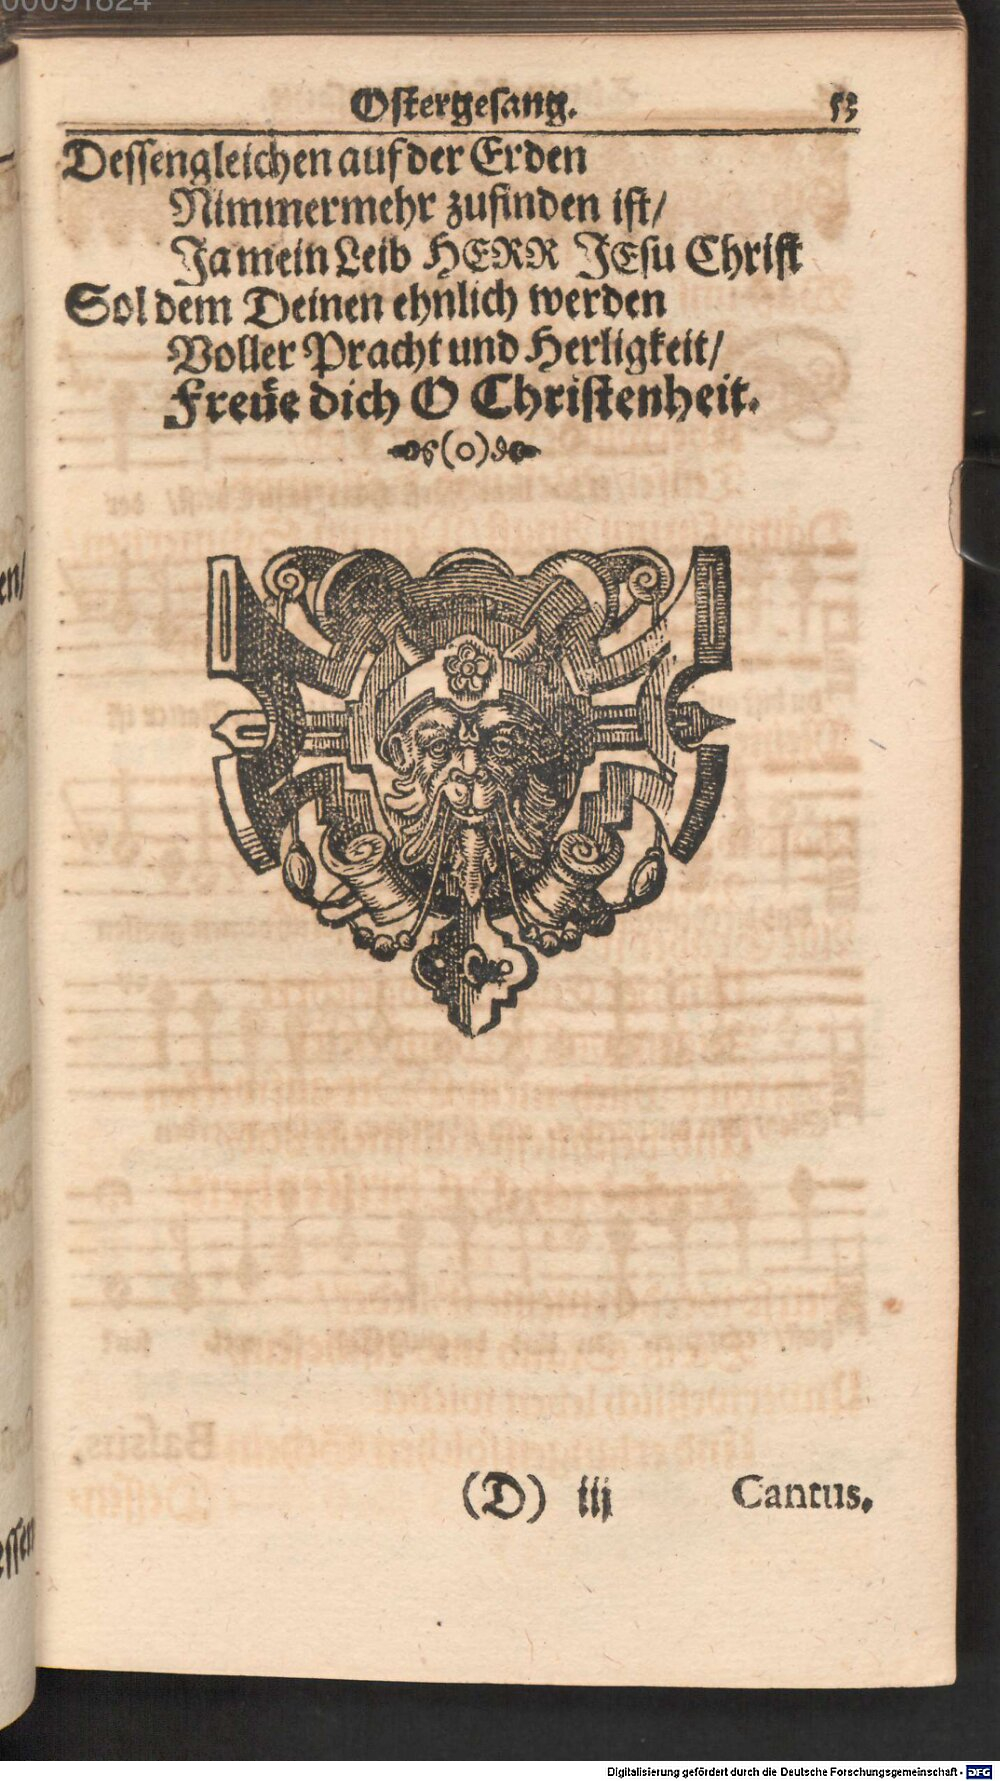 00091824
Ostergesang. 53
Dessengleichen auf der Erden
Nimmermehr zufinden ist/
Ja mein Leib HERR JEsu Christ
Sol dem Deinen ehnlich werden
Voller Pracht und Herligkeit/
Freüe dich O Christenheit.
(o)
(D) iij Cantus.
Digitalisierung gefördert durch die Deutsche Forschungsgemeinschaft - DFG